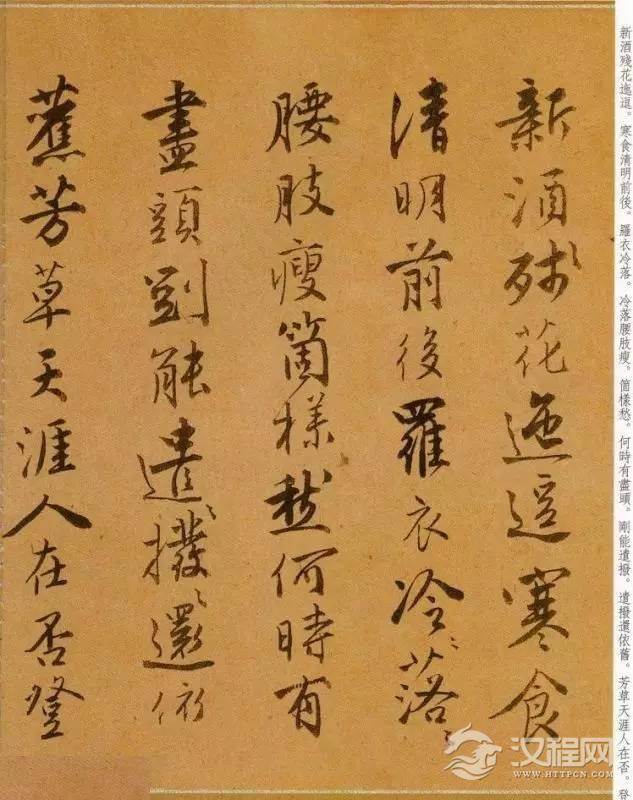 新酒殘花迤逗。寒食清明前後。羅衣冷落。冷落腰肢瘦。箇樣愁。何時有盡頭。剛能遣撥。遣撥還依舊。芳草天涯人在否。登
新酒殘花迤逗寒食
清明前後羅衣冷〻落〻
腰肢瘦箇樣愁何時有
盡頭剛能遣〻撥〻還依
舊芳草天涯人在否登
汉程网
WWW.HTTPCN.COM